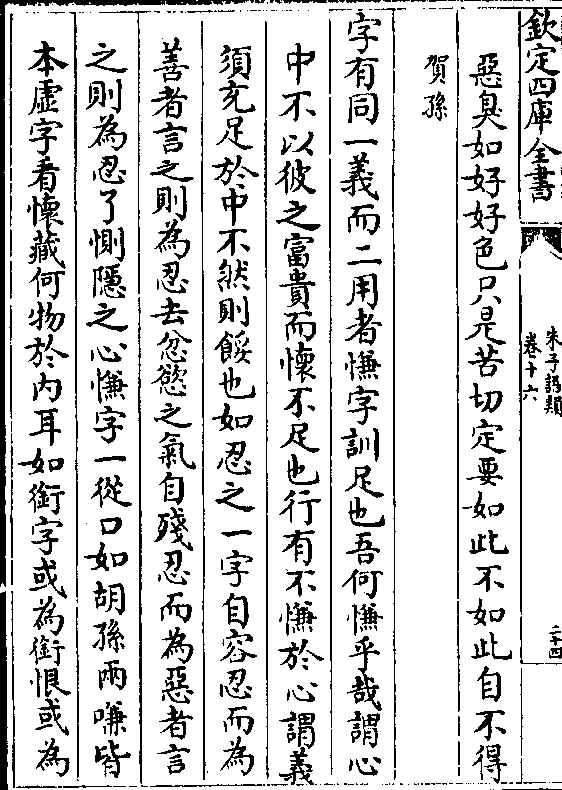 欽定四庫全書
朱子語類
卷十六
二十四
惡臭如好好色只是苦切定要如此不如此自不得
賀孫
字有同一義而二用者慊字訓足也吾何慊乎哉謂心
中不以彼之富貴而懷不足也行有不慊於心謂義
須充足於中不然則餒也如忍之一字自容忍而為
善者言之則為忍去忿慾之氣自殘忍而為惡者言
之則為忍了惻隱之心慊字一從口如胡孫兩嗛皆
本虛字看懷藏何物於内耳如銜字或為銜恨或為